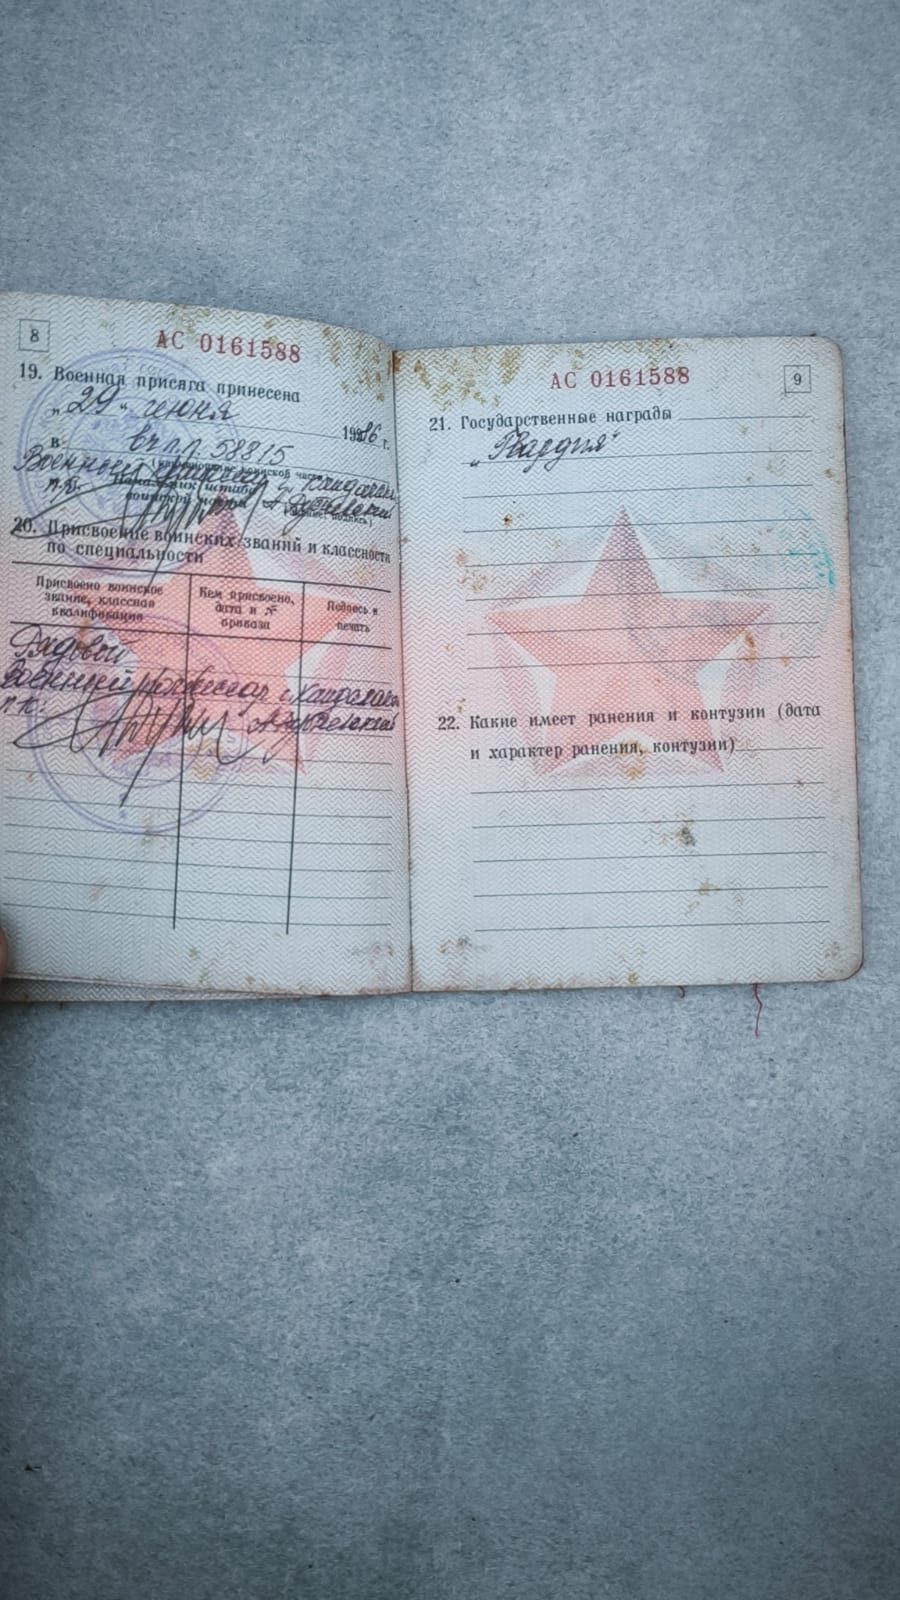 8
АС 0161588
19. Военная присяга принесена
„ 29 “ июня
1986 г.
в вч п.п. 58815
Военный
п.п. Начальник штаба
воинской части
20. Присвоение воинских званий и классности
по специальности
Присвоено воинское
звание, классная
квалификация
Кем присвоено,
дата и №
приказа
Подпись и
печать
Рядовой
Военный
АС 0161588
9
21. Государственные награды
„Гвардия“
22. Какие имеет ранения и контузии (дата
и характер ранения, контузии)